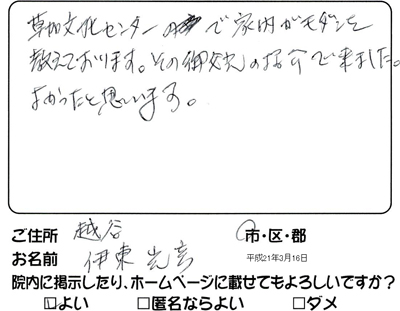 草加文化センターの で家内がモダンを
教えております。その御友人の紹介で来ました。
よかったと思います。
ご住所 越谷 市・区・郡
お名前 伊東 平成21年3月16日
院内に掲示したり、ホームページに載せてもよろしいですか？
□よい □匿名ならよい □ダメ